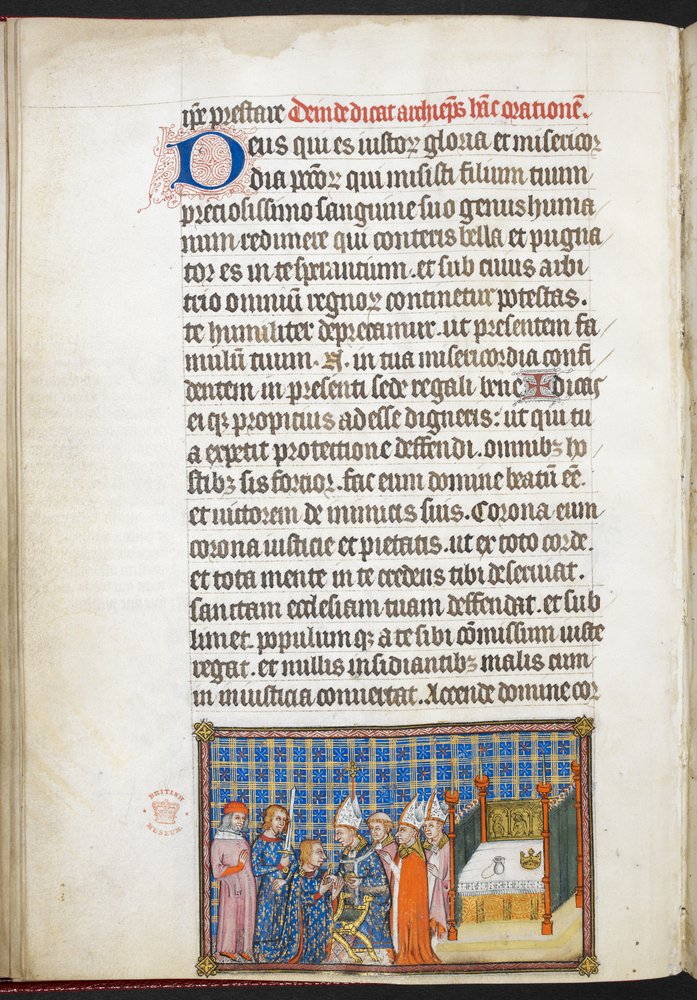 ip̄e prestare Deinde dicat archiep̄s hāc orationē.
Deus qui es iustoꝝ gloria et misericor
dia pccōꝝ qui misisti filium tuum
preciosissimo sanguine suo genus huma
num redimere qui conteris bella et pugna
tor es in te sperantium. et sub cuius arbi
trio omniū regnoꝝ continetur potestas.
te humiliter deprecamur. ut presentem fa
mulū tuum. N. in tua misericordia confi
dentem in presenti sede regali bene ✠ dicas
ei qꝫ propicius adesse digneris: ut qui tu
a expetit protectione deffendi. omnibꝫ ho
stibꝫ sis fortior. fac eum domine beatū eē.
et uictorem de inimicis suis. Corona eum
corona iusticie et pietatis. ut ex toto corde.
et tota mente in te credens tibi deseruiat.
sanctam ecclesiam tuam deffendat. et sub
limet. populum qꝫ a te sibi cōmissum iuste
regat. et nullis insidiantibꝫ malis eum
in iniusticia conuertat. Accende domine cor
BRITISH
MUSEUM